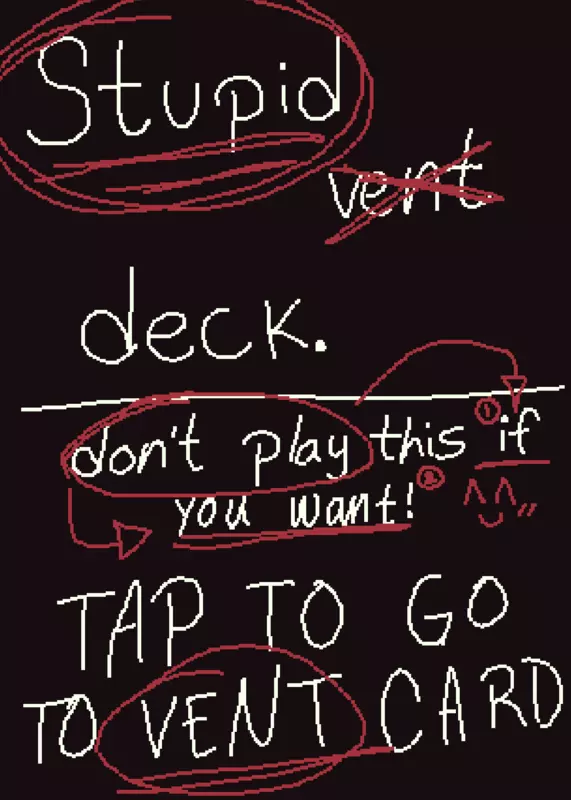 Stupid
vent
deck.
don't play this if
you want!
TAP TO GO
TO VENT CARD
1
2